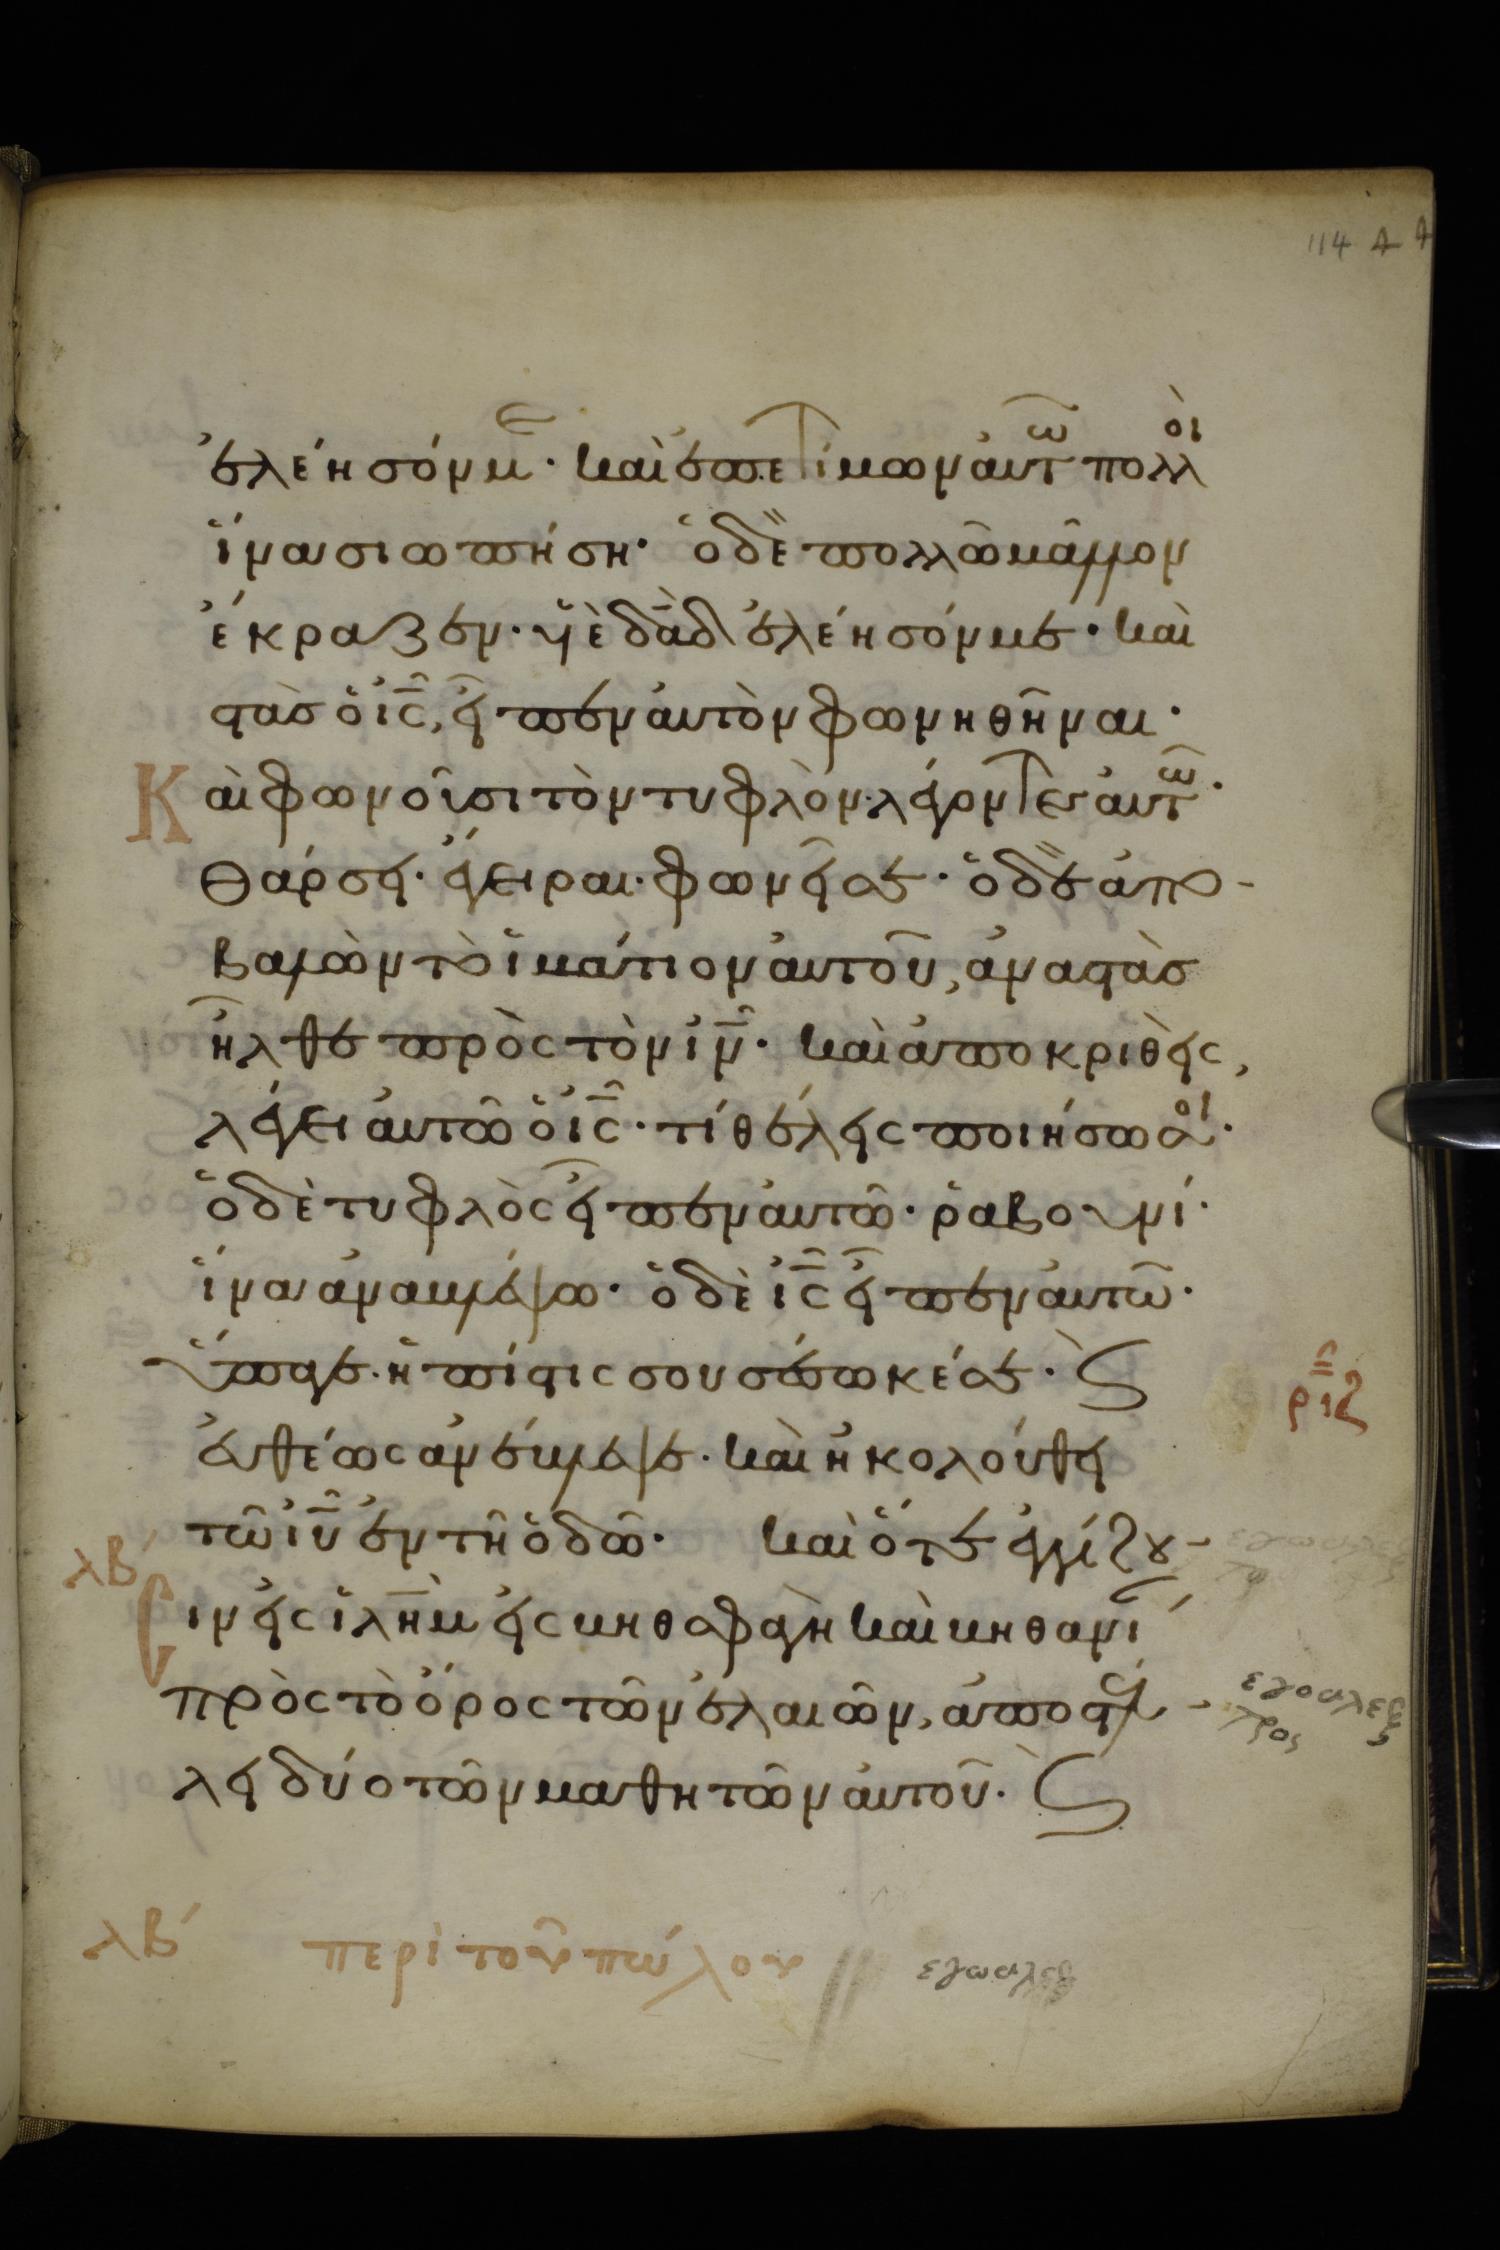 114
ἐλέησόν με· καὶ ἐπετίμων αὐτῶ πολλοὶ
ἵνα σιωπήση· ὁ δὲ πολλῶ μᾶλλον
ἔκραζεν· υἱὲ δαδ ἐλέησόν με· καὶ
στὰς ὁ ις, εἶπεν αὐτὸν φωνηθῆναι·
Καὶ φωνοῦσι τὸν τυφλὸν λέγοντες αὐτῶ·
θάρσει· ἔγειραι· φωνεῖ σε· ὁ δὲ ἀπο-
βαλὼν τὸ ἱμάτιον αὐτοῦ, ἀναστὰς
ἦλθε πρὸς τὸν ιν· καὶ ἀποκριθεὶς,
λέγει αὐτῶ ὁ ις· τί θέλεις ποιήσω σοί·
ὁ δὲ τυφλὸς εἶπεν αὐτῶ· ῥαβουνί·
ἵνα ἀναβλέψω· ὁ δὲ ις εἶπεν αὐτῶ·
ὕπαγε· ἡ πίστις σου σέσωκέ σε·
ριζ
εὐθέως ἀνέβλεψε· καὶ ἠκολούθει
τῶ ιυ ἐν τῆ ὁδῶ· καὶ ὅτε ἐγγίζου-
λβ
σιν εἰς ἱλημ εἰς βηθσφαγὴ καὶ βηθανί
πρὸς τὸ ὄρος τῶν ἐλαιῶν, ἀποστέλ-
λει δύο τῶν μαθητῶν αὐτοῦ·
λβ περὶ τοῦ πώλου